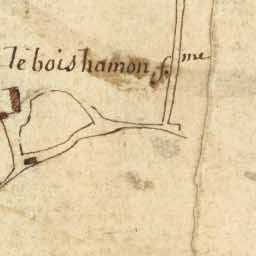 le bois hamon f.me